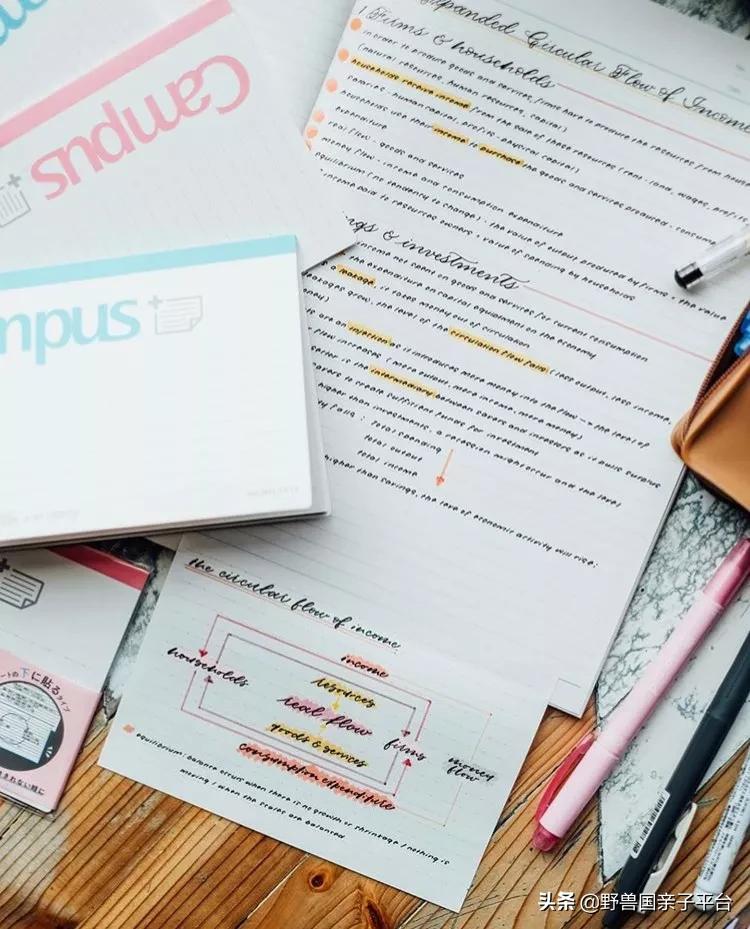 Campus
mpus
Expanded Circular Flow of Income
1. Firms & households
in order to produce goods and services, firms have to produce the resources from
(natural resources, human resources, capital)
households receive income from the sale of these resources (rent - land, wages,
salaries - human capital, profits - physical capital)
households use their income to purchase the goods and services produced - consume
expenditure
real flow - goods and services
money flow - income and consumption expenditure
equilibrium (no tendency to change) - the value of output produced by firms = the value
income paid to resources owners = value of spending by households
& investments
income not spent on goods and services for current consumption
the expenditure on capital equipment on the economy
a leakage, it takes money out of circulation
grow, the level of the circulation flow falls (less output, less income,
money)
are an injection as it introduces more money into the flow - the level of
flow increases (more output, more income, more money)
is the intermediary between savers and investors as it pulls surplus
savers to create sufficient funds for investment
higher than investments, a recession might occur and the level
falls: total spending
total output
total income
higher than savings, the level of economic activity will rise:
the circular flow of income
income
households
resources
real flow
goods & services
firms
money
flow
consumption expenditure
equilibrium: balance occurs when there is no growth or shrinkage / nothing is
moving / when the scales are balanced
頭条 @野兽国亲子平台